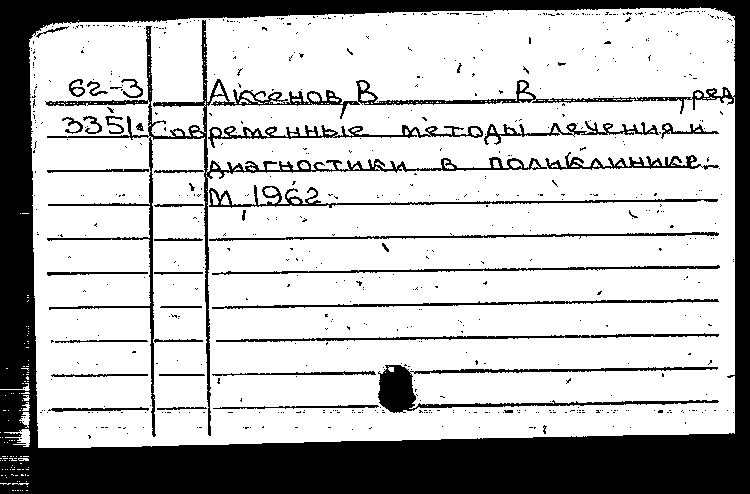 62-3 Аксенов, В В , ред
3351. Современные методы лечения и
диагностики в поликлинике.
М, 1962.